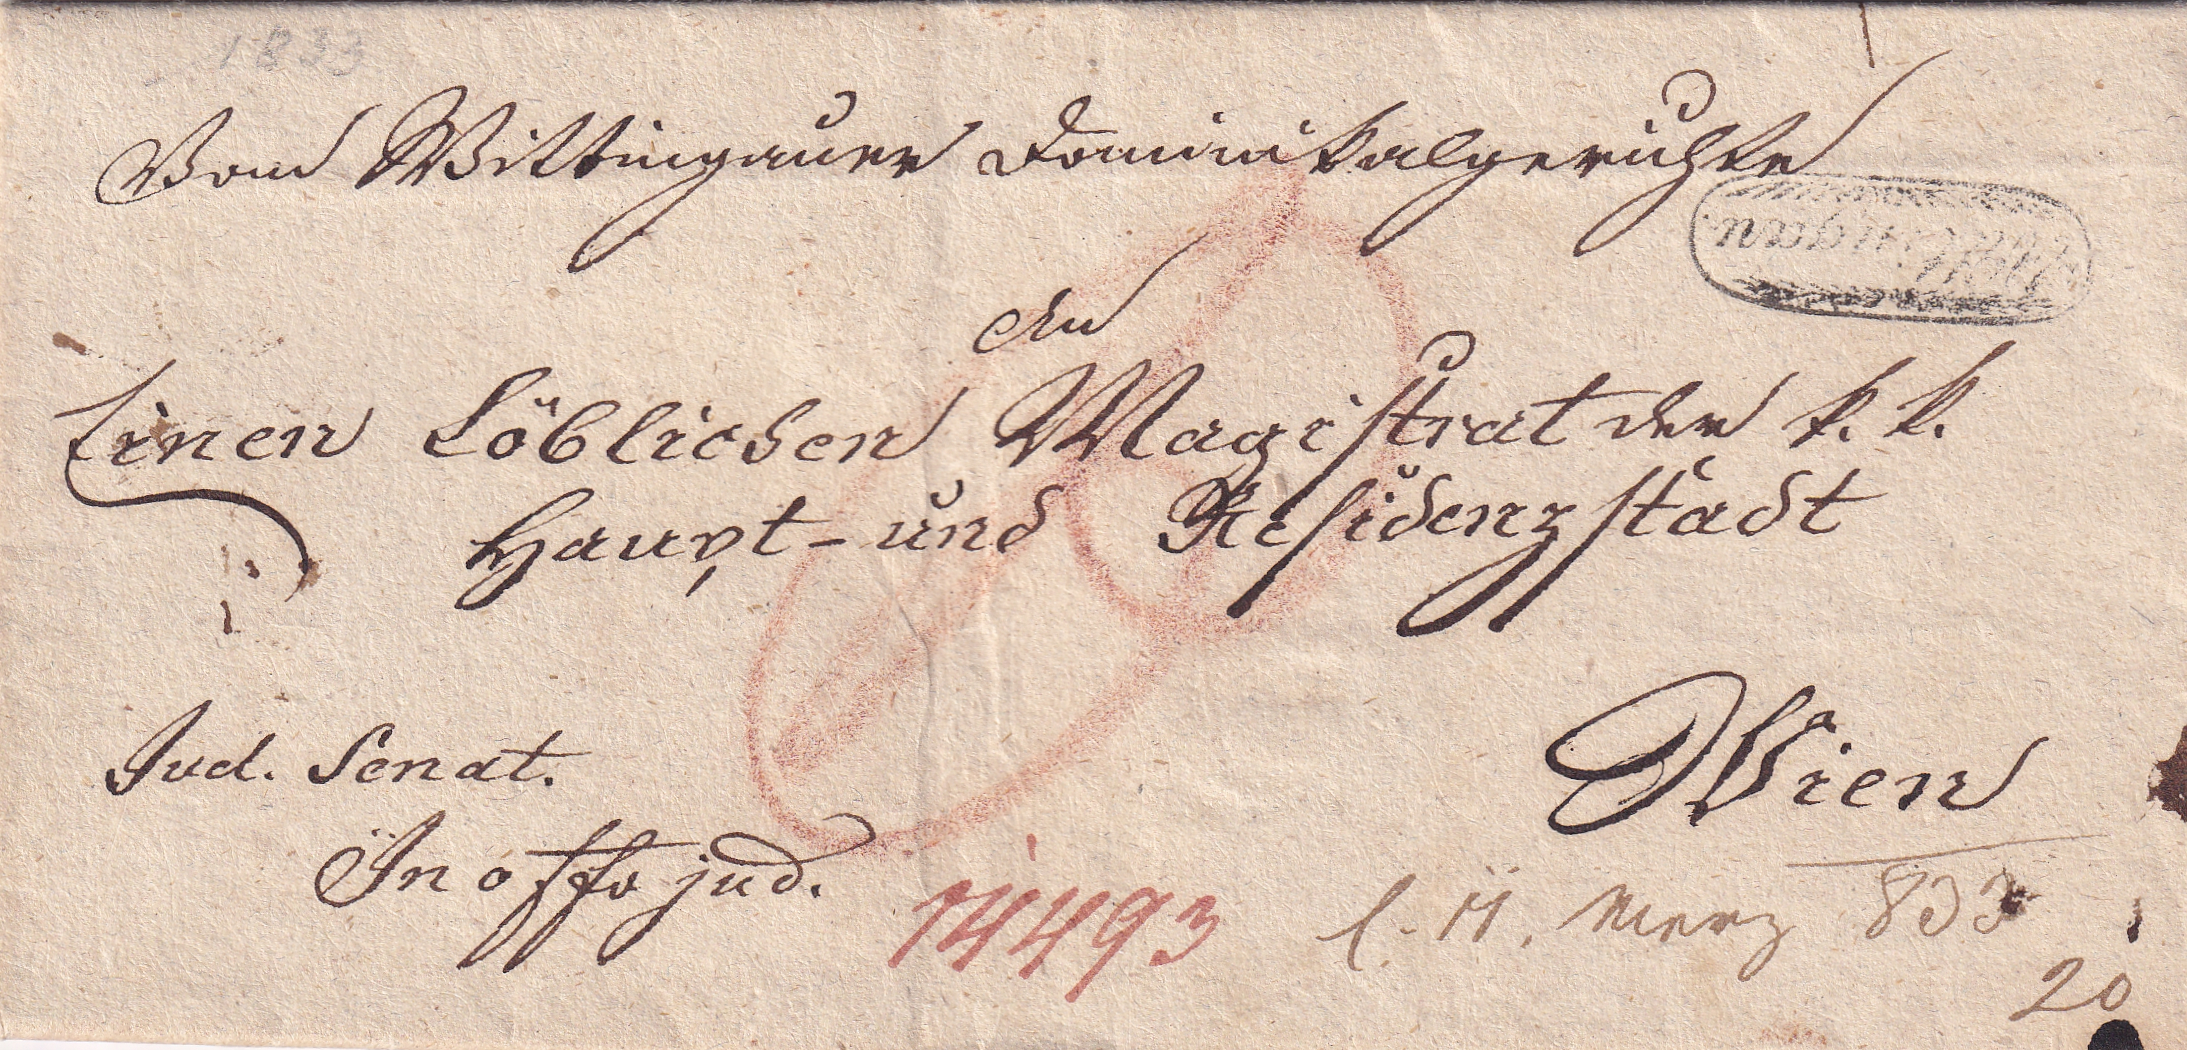 1833
Vom Wittingauer Dominikalgerichte
An
Einen Löblichen Magistrat der k. k.
Haupt- und Residenzstadt
Jud. Senat.
Wien
In offo jud.
14493
Merz 833
20